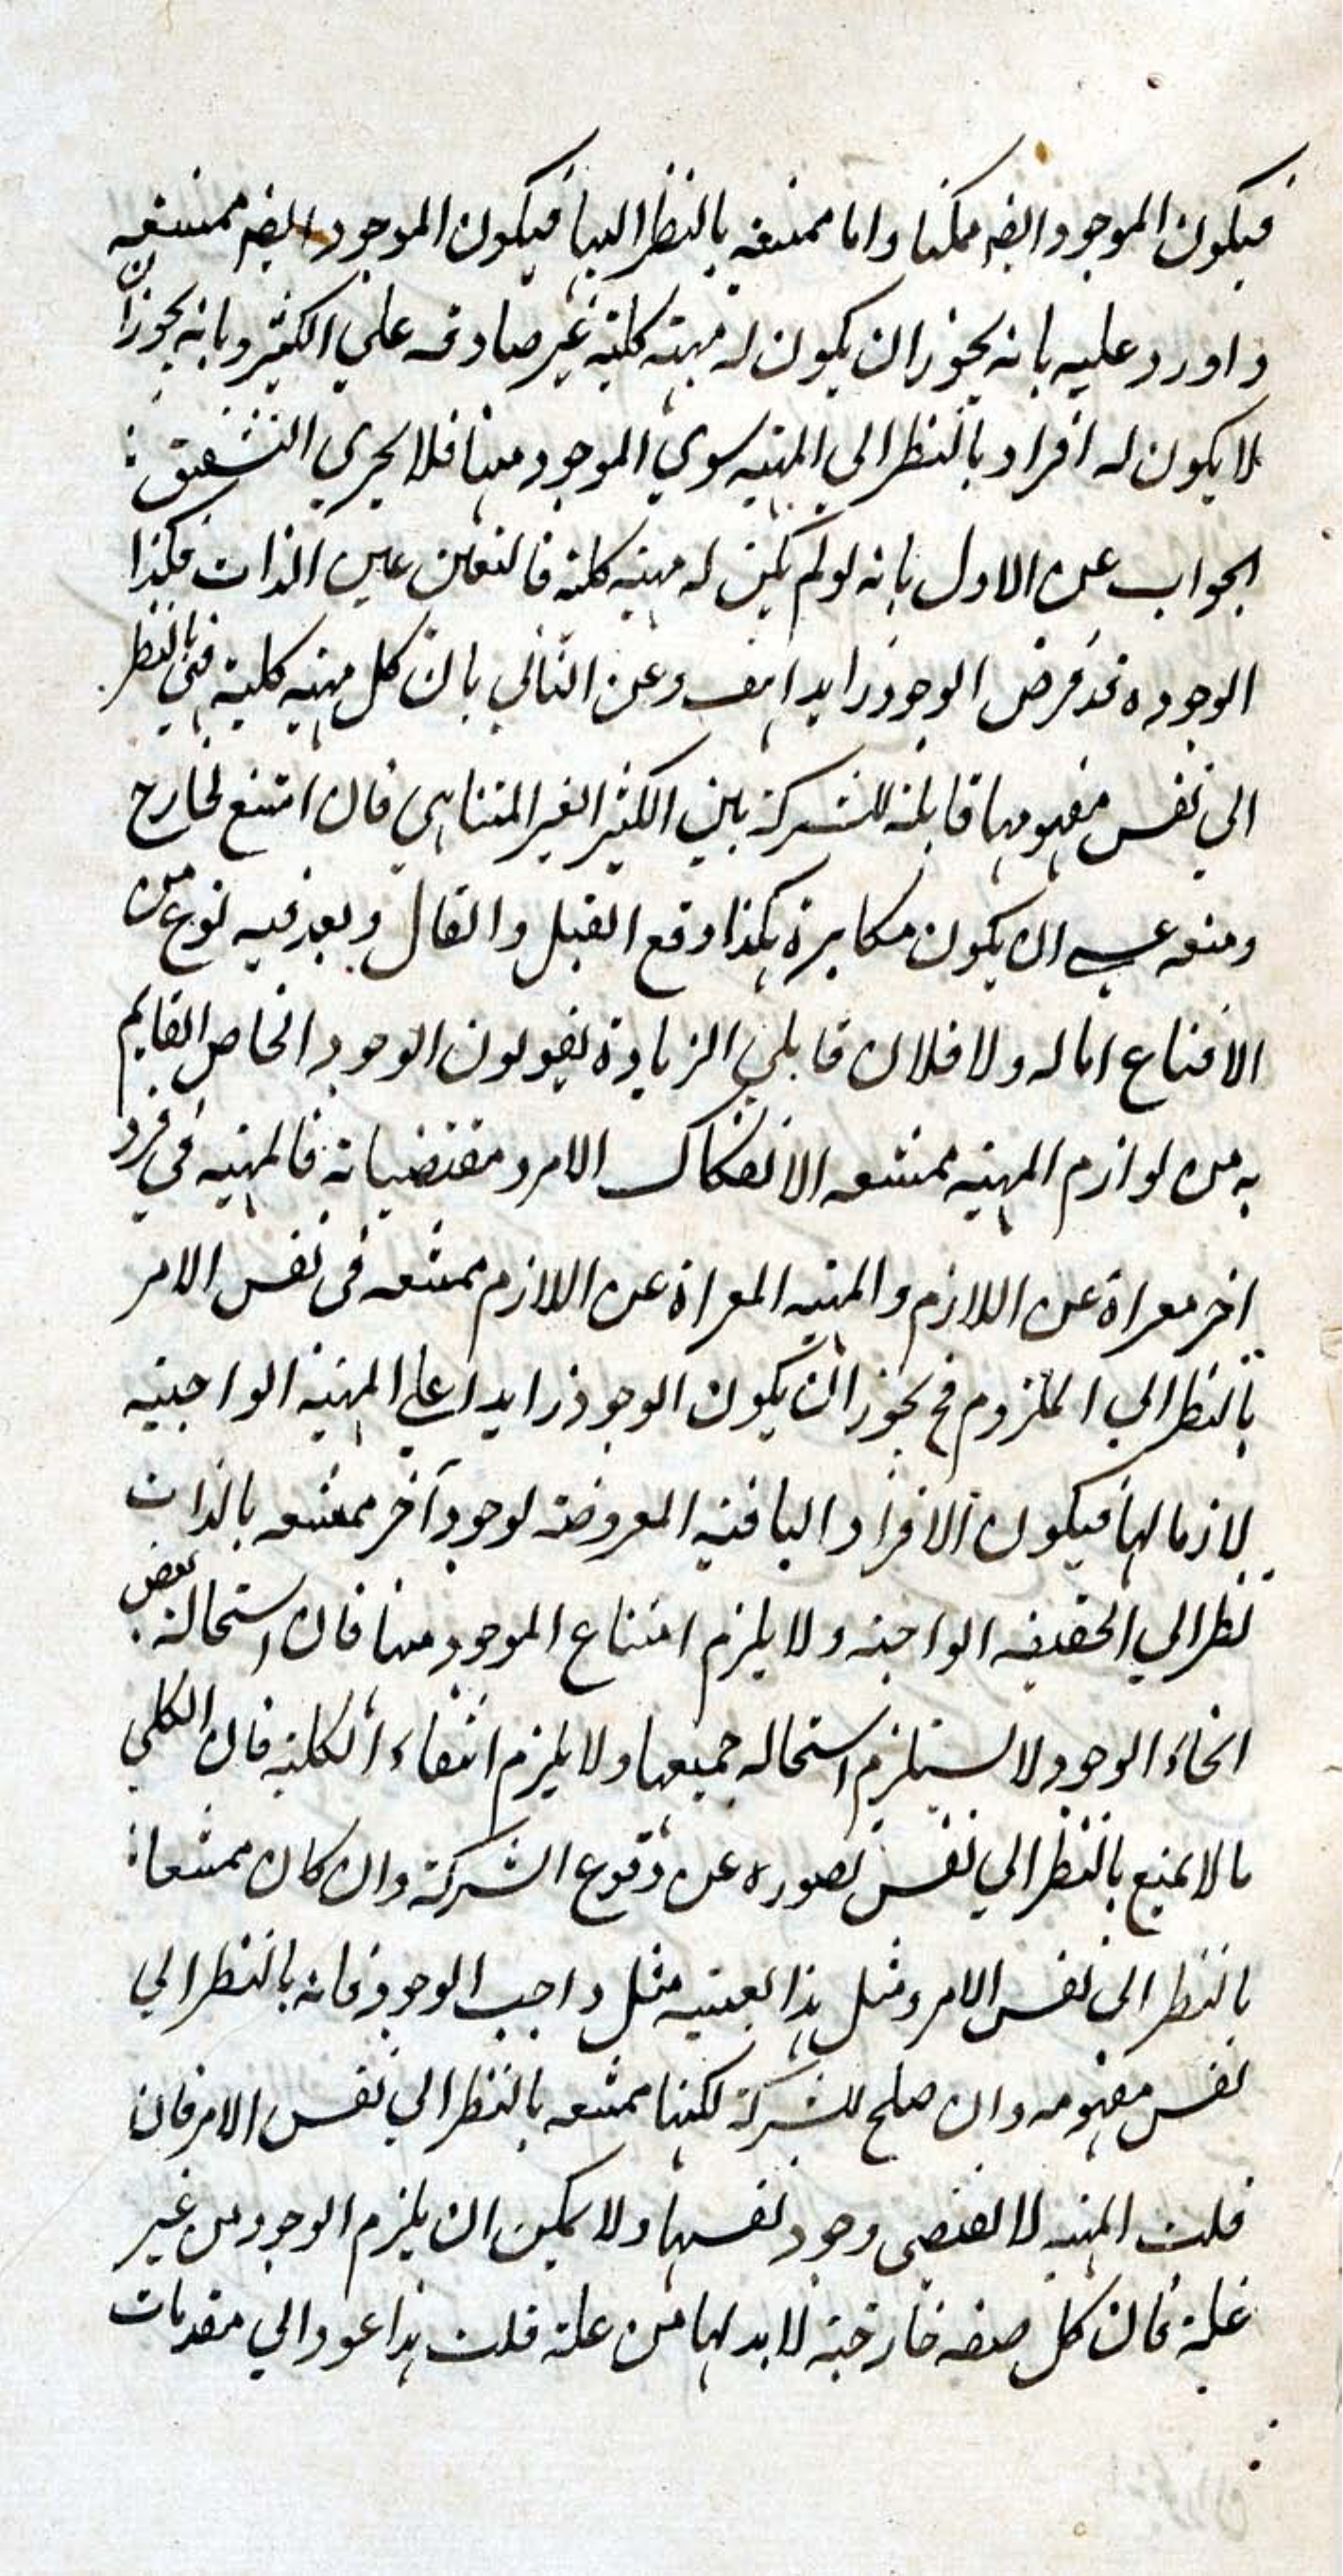 فيكون الموجود ايضم ممكنا واما ممتنعه بالنظر اليها فيكون الموجود ايضم ممتنعه
واورد عليه بانه يجوز ان يكون له مهية كلية غير صادقه علي الكثير وبانه يجوز ان
لا يكون له افراد بالنظر الى المهيه سوي الموجود منها فلا يجري التشقيق
الجواب عن الاول بانه لو لم يكن له مهيه كلية فالتعين عين الذات فكذا
الوجود وقد فرض الوجود زايدا هف وعن الثاني بان كل مهيه كلية فهي بالنظر
الي نفس مفهومها قابلة للشركة بين الكثير الغير المتناهي فان امتنع لخارج
ومنعه عسي ان يكون مكابرة هكذا وقع القيل والقال وبعد فيه نوع من
الاقناع اما له ولا فلان قايلي الزيادة يقولون الوجود الخاص القايم
به من لوازم المهيه ممتنعه الانفكاك الامر ومقتضياته فالمهيه في فرد
اخر معراة عن اللازم والمهيه المعراة عن اللازم ممتنعه في نفس الامر
بالنظر الي الملزوم فح يجوز ان يكون الوجود زايدا علي المهية الواجبيه
لازما لها فيكون الافراد الباقيه المعروضة لوجود آخر ممتنعه بالذات
نظرا الي الحقيقه الواجبه ولا يلزم امتناع الموجود منها فان استحالة بعض
انحاء الوجود لا يستلزم استحاله جميعها ولا يلزم انتفاء الكلية فان الكلي
ما لا يمنع بالنظر الي نفس تصوره عن وقوع الشركة وان كان ممتنعا
بالنظر الي نفس الامر ومثل هذا بعينيه مثل واجب الوجود فانه بالنظر الي
نفس مفهومه وان صلح للشركة لكنها ممتنعه بالنظر الي نفس الامر فان
قلت المهيه لا تقتضى وجود نفسها ولا يمكن ان يلزم الوجود من غير
علة فان كل صفه خارجية لا بد لها من علة قلت هذا عود الي مقدمات